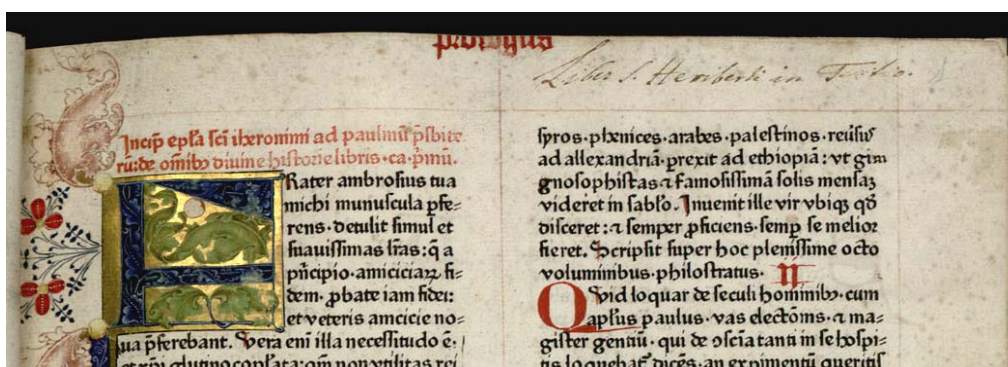 prologus
Liber S. Heriberti in Tuitio.
Incip̄ ep̄la sc̄i iheronimi ad paulinū p̄sbite
rū: de om̄ibꝫ diuine historie libris · ca · p̄mū.
FRater ambrosius tua
michi munuscula ꝑfe⸗
rens · detulit simul et
suauissimas lr̄as: q̄ a
pn̄cipio · amiciciaꝝ fi⸗
dem · ꝓbate iam fidei:
et veteris amcicie no⸗
ua p̄ferebant. Vera eni illa necessitudo ē ·
et xp̄i glutino copl̄ata: qm̄ non vtilitas rei
syros · phenices · arabes · palestinos · reūsus
ad allexandriā · prexit ad ethiopiā: vt gim
gnosophistas ⁊ famosissimā solis mensaꝫ
videret in sablo. Inuenit ille vir vbiqꝫ qd̄
disceret: ⁊ semper ꝓficiens · semꝑ se melior
fieret. Scripsit super hoc plenissime octo
voluminibus · philostratus · II
QVid loquar de seculi hominibꝫ · cum
apl̄us paulus · vas electōnis · ⁊ ma⸗
gister gentiū · qui de ꝯscīa tanti in se hospi⸗
tis loquebat᷑ dicēs · an exꝑimentū queritis